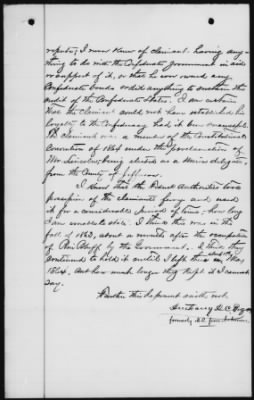 I never knew of claimant having any-
thing to do with the Confederate government in aid
or support of it, or that he ever owned any
Confederate bonds or did anything to sustain the
credit of the Confederate States. I am certain
that the claimant could not have established his
loyalty to the Confederacy had it been successful.
The claimant was a member of the Constitutional
Convention of 1864 under the proclamation of
Mr Lincoln, being elected as a Union delegate
from the County of Jefferson.
I know that the Federal Authorities took
possession of the claimants ferry and used
it for a considerable period of time, how long
I am unable to state. I think this was in the
fall of 1863, about a month after the occupation
of Pine Bluff by the Government. I think they
continued to hold it until I left there in May
1864, and how much longer they kept it I cannot
say.
Further this deponent saith not.
Anthony A. C.
formerly